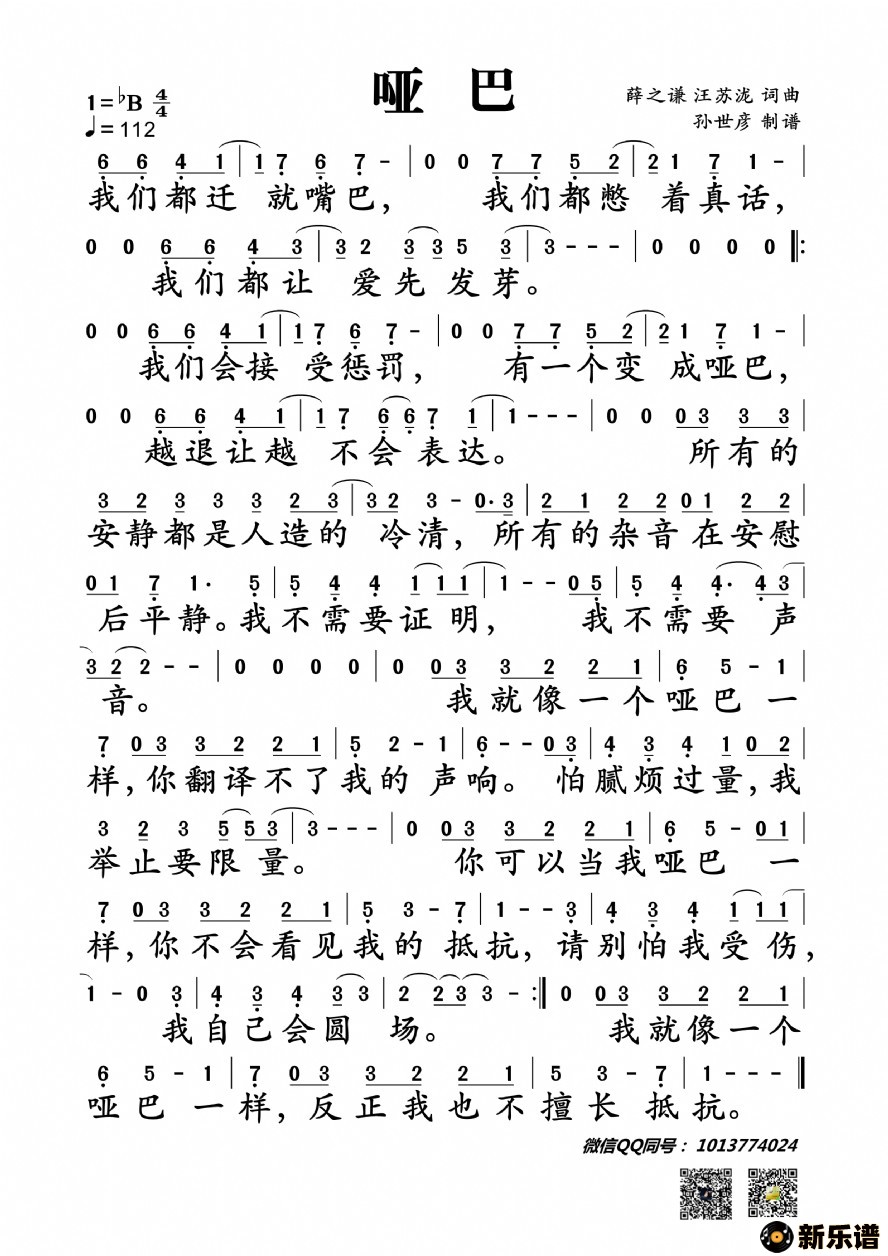 哑 巴
1=♭B 4/4
薛之谦 汪苏泷 词曲
♩=112
孙世彦 制谱
6 6 4 1 | 1 7 6 7 - | 0 0 7 7 5 2 | 2 1 7 1 - |
我们都迁 就嘴巴, 我们都憋 着真话,
0 0 6 6 4 3 | 3 2 3 3 5 3 | 3 - - - | 0 0 0 0 ‖:
我们都让 爱先发芽。
0 0 6 6 4 1 | 1 7 6 7 - | 0 0 7 7 5 2 | 2 1 7 1 - |
我们会接 受惩罚, 有一个变 成哑巴,
0 0 6 6 4 1 | 1 7 6 6 7 1 | 1 - - - | 0 0 0 3 3 3 |
越退让越 不会表达。 所有的
3 2 3 3 3 2 3 | 3 2 3 - 0· 3 | 2 1 2 2 0 1 2 2 |
安静都是人造的 冷清, 所有的杂音在安慰
0 1 7 1· 5 | 5 4 4 1 1 1 | 1 - - 0 5 | 5 4 4· 4 3 |
后平静。我不需要证明, 我不需要 声
3 2 2 - - | 0 0 0 0 | 0 0 3 3 2 2 1 | 6 5 - 1 |
音。 我就像一个哑巴一
7 0 3 3 2 2 1 | 5 2 - 1 | 6 - - 0 3 | 4 3 4 1 0 2 |
样, 你翻译不了我的 声响。 怕腻烦过量, 我
3 2 3 5 5 3 | 3 - - - | 0 0 3 3 2 2 1 | 6 5 - 0 1 |
举止要限量。 你可以当我哑巴 一
7 0 3 3 2 2 1 | 5 3 - 7 | 1 - - 3 | 4 3 4 1 1 1 |
样, 你不会看见我的 抵抗, 请别怕我受 伤,
1 - 0 3 | 4 3 4 3 3 | 2 2 3 3 - :‖ 0 0 3 3 2 2 1 |
我自己会圆 场。 我就像一个
6 5 - 1 | 7 0 3 3 2 2 1 | 5 3 - 7 | 1 - - - ‖
哑巴 一样, 反正我也不擅长 抵抗。
微信QQ同号： 1013774024
新乐谱